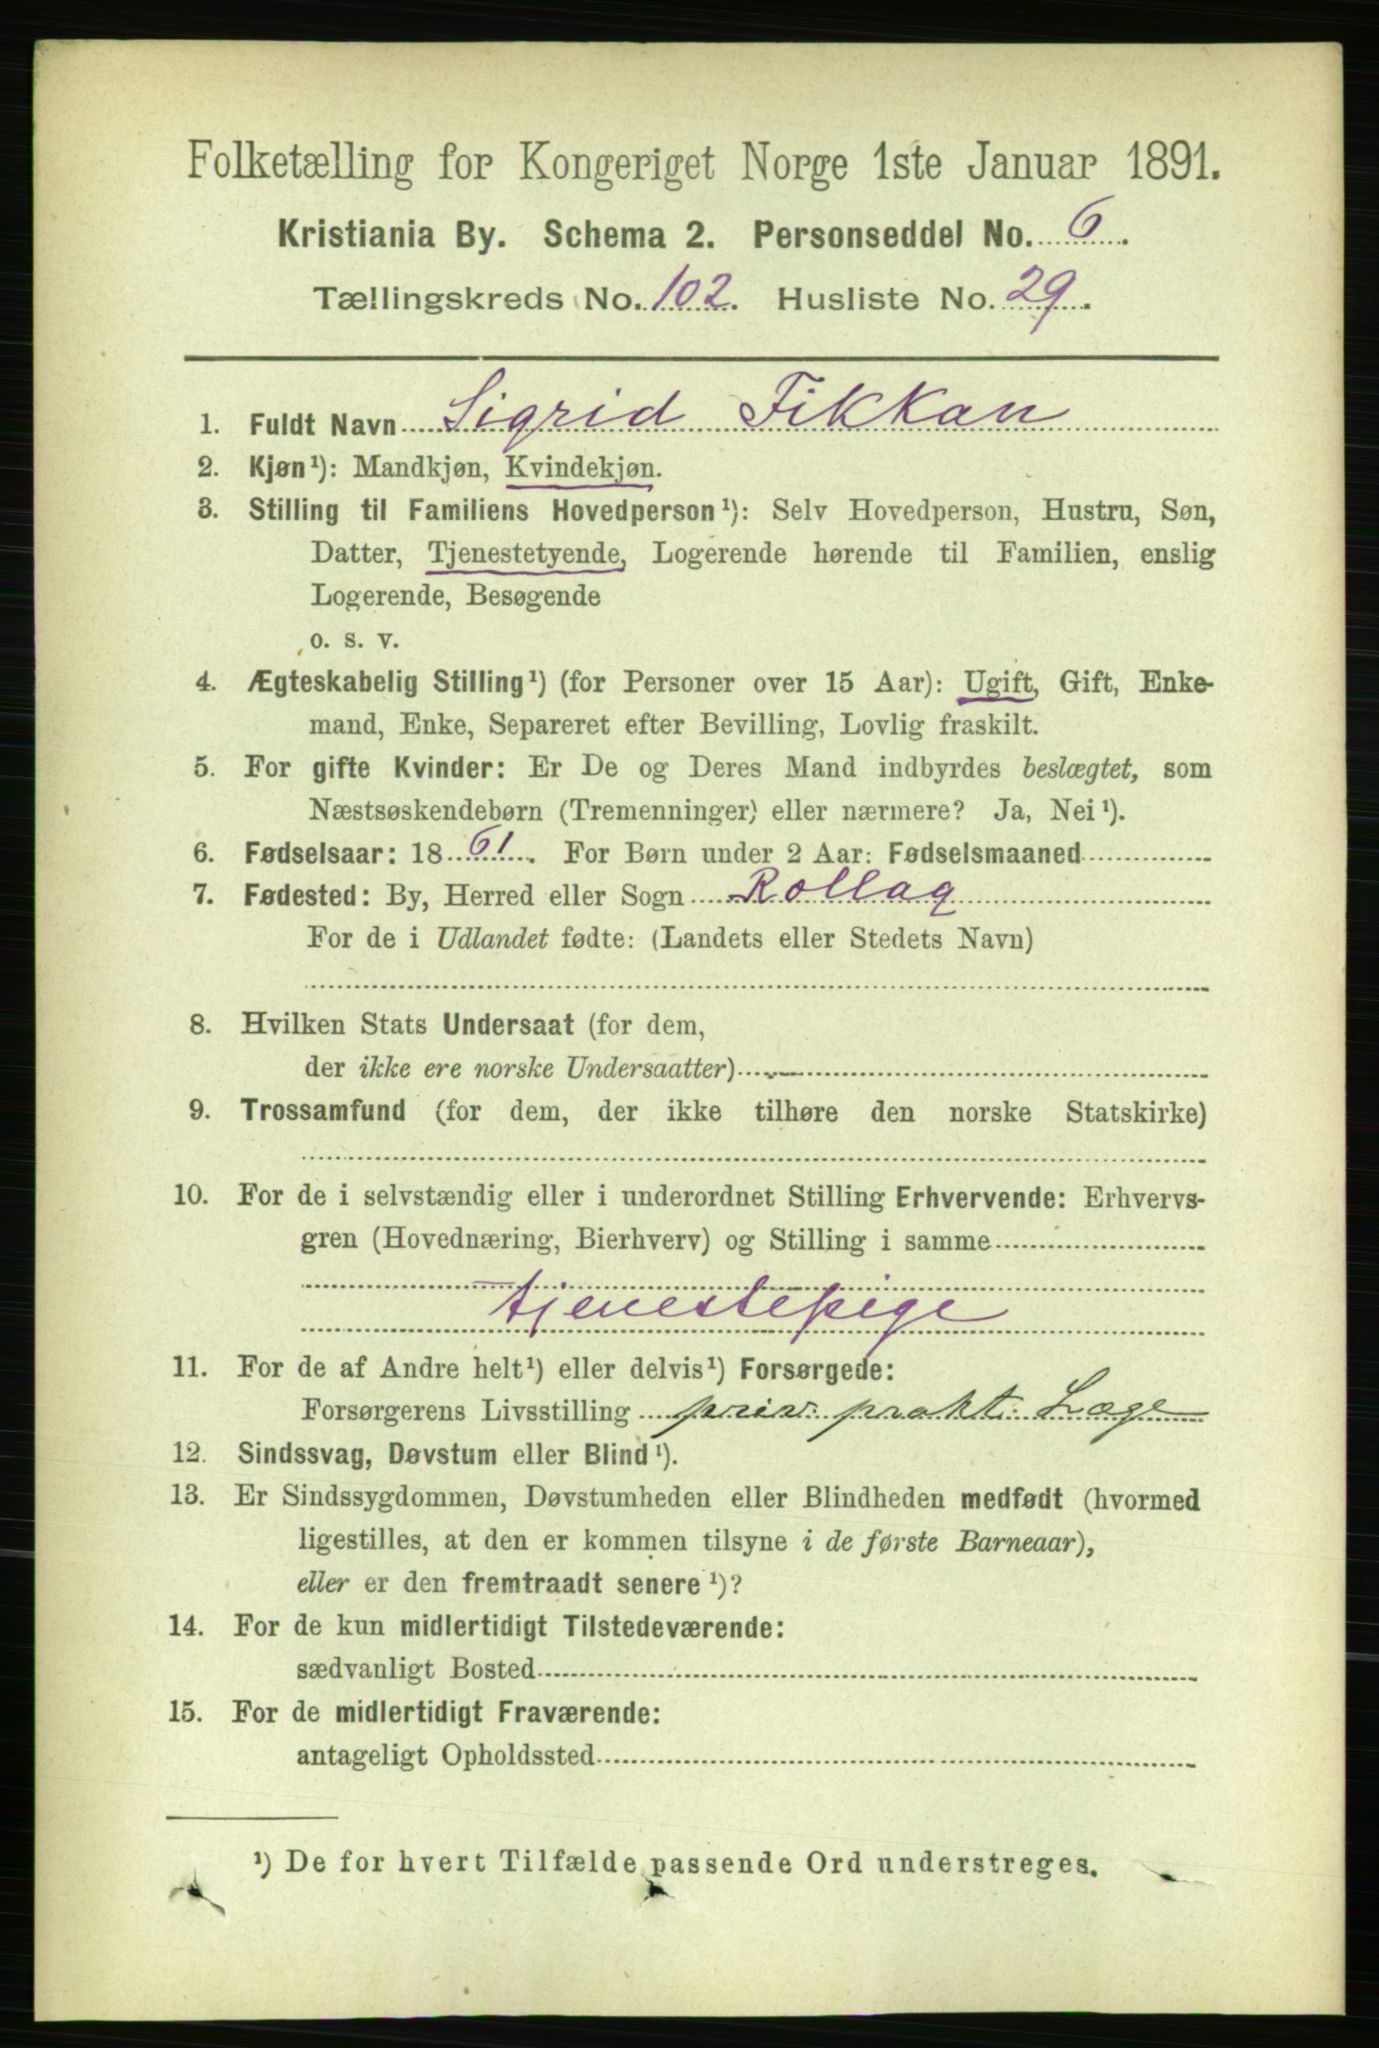 Folketælling for Kongeriget Norge 1ste Januar 1891.
Kristiania By. Schema 2. Personseddel No. 6.
Tællingskreds No. 102. Husliste No. 29.
1. Fuldt Navn Sigrid Fikkan
2. Kjøn¹): Mandkjøn, Kvindekjøn.
3. Stilling til Familiens Hovedperson¹): Selv Hovedperson, Hustru, Søn,
Datter, Tjenestetyende, Logerende hørende til Familien, enslig
Logerende, Besøgende
o. s. v.
4. Ægteskabelig Stilling¹) (for Personer over 15 Aar): Ugift, Gift, Enke-
mand, Enke, Separeret efter Bevilling, Lovlig fraskilt.
5. For gifte Kvinder: Er De og Deres Mand indbyrdes beslægtet, som
Næstsøskendebørn (Tremenninger) eller nærmere? Ja, Nei¹).
6. Fødselsaar: 1861. For Børn under 2 Aar: Fødselsmaaned
7. Fødested: By, Herred eller Sogn Rollag
For de i Udlandet fødte: (Landets eller Stedets Navn)
8. Hvilken Stats Undersaat (for dem,
der ikke ere norske Undersaatter)
9. Trossamfund (for dem, der ikke tilhøre den norske Statskirke)
10. For de i selvstændig eller i underordnet Stilling Erhvervende: Erhvervs-
gren (Hovednæring, Bierhverv) og Stilling i samme
tjenestepige
11. For de af Andre helt¹) eller delvis¹) Forsørgede:
Forsørgerens Livsstilling priv. prakt. Læge
12. Sindssvag, Døvstum eller Blind¹).
13. Er Sindssygdommen, Døvstumheden eller Blindheden medfødt (hvormed
ligestilles, at den er kommen tilsyne i de første Barneaar),
eller er den fremtraadt senere¹)?
14. For de kun midlertidigt Tilstedeværende:
sædvanligt Bosted
15. For de midlertidigt Fraværende:
antageligt Opholdssted
¹) De for hvert Tilfælde passende Ord understreges.